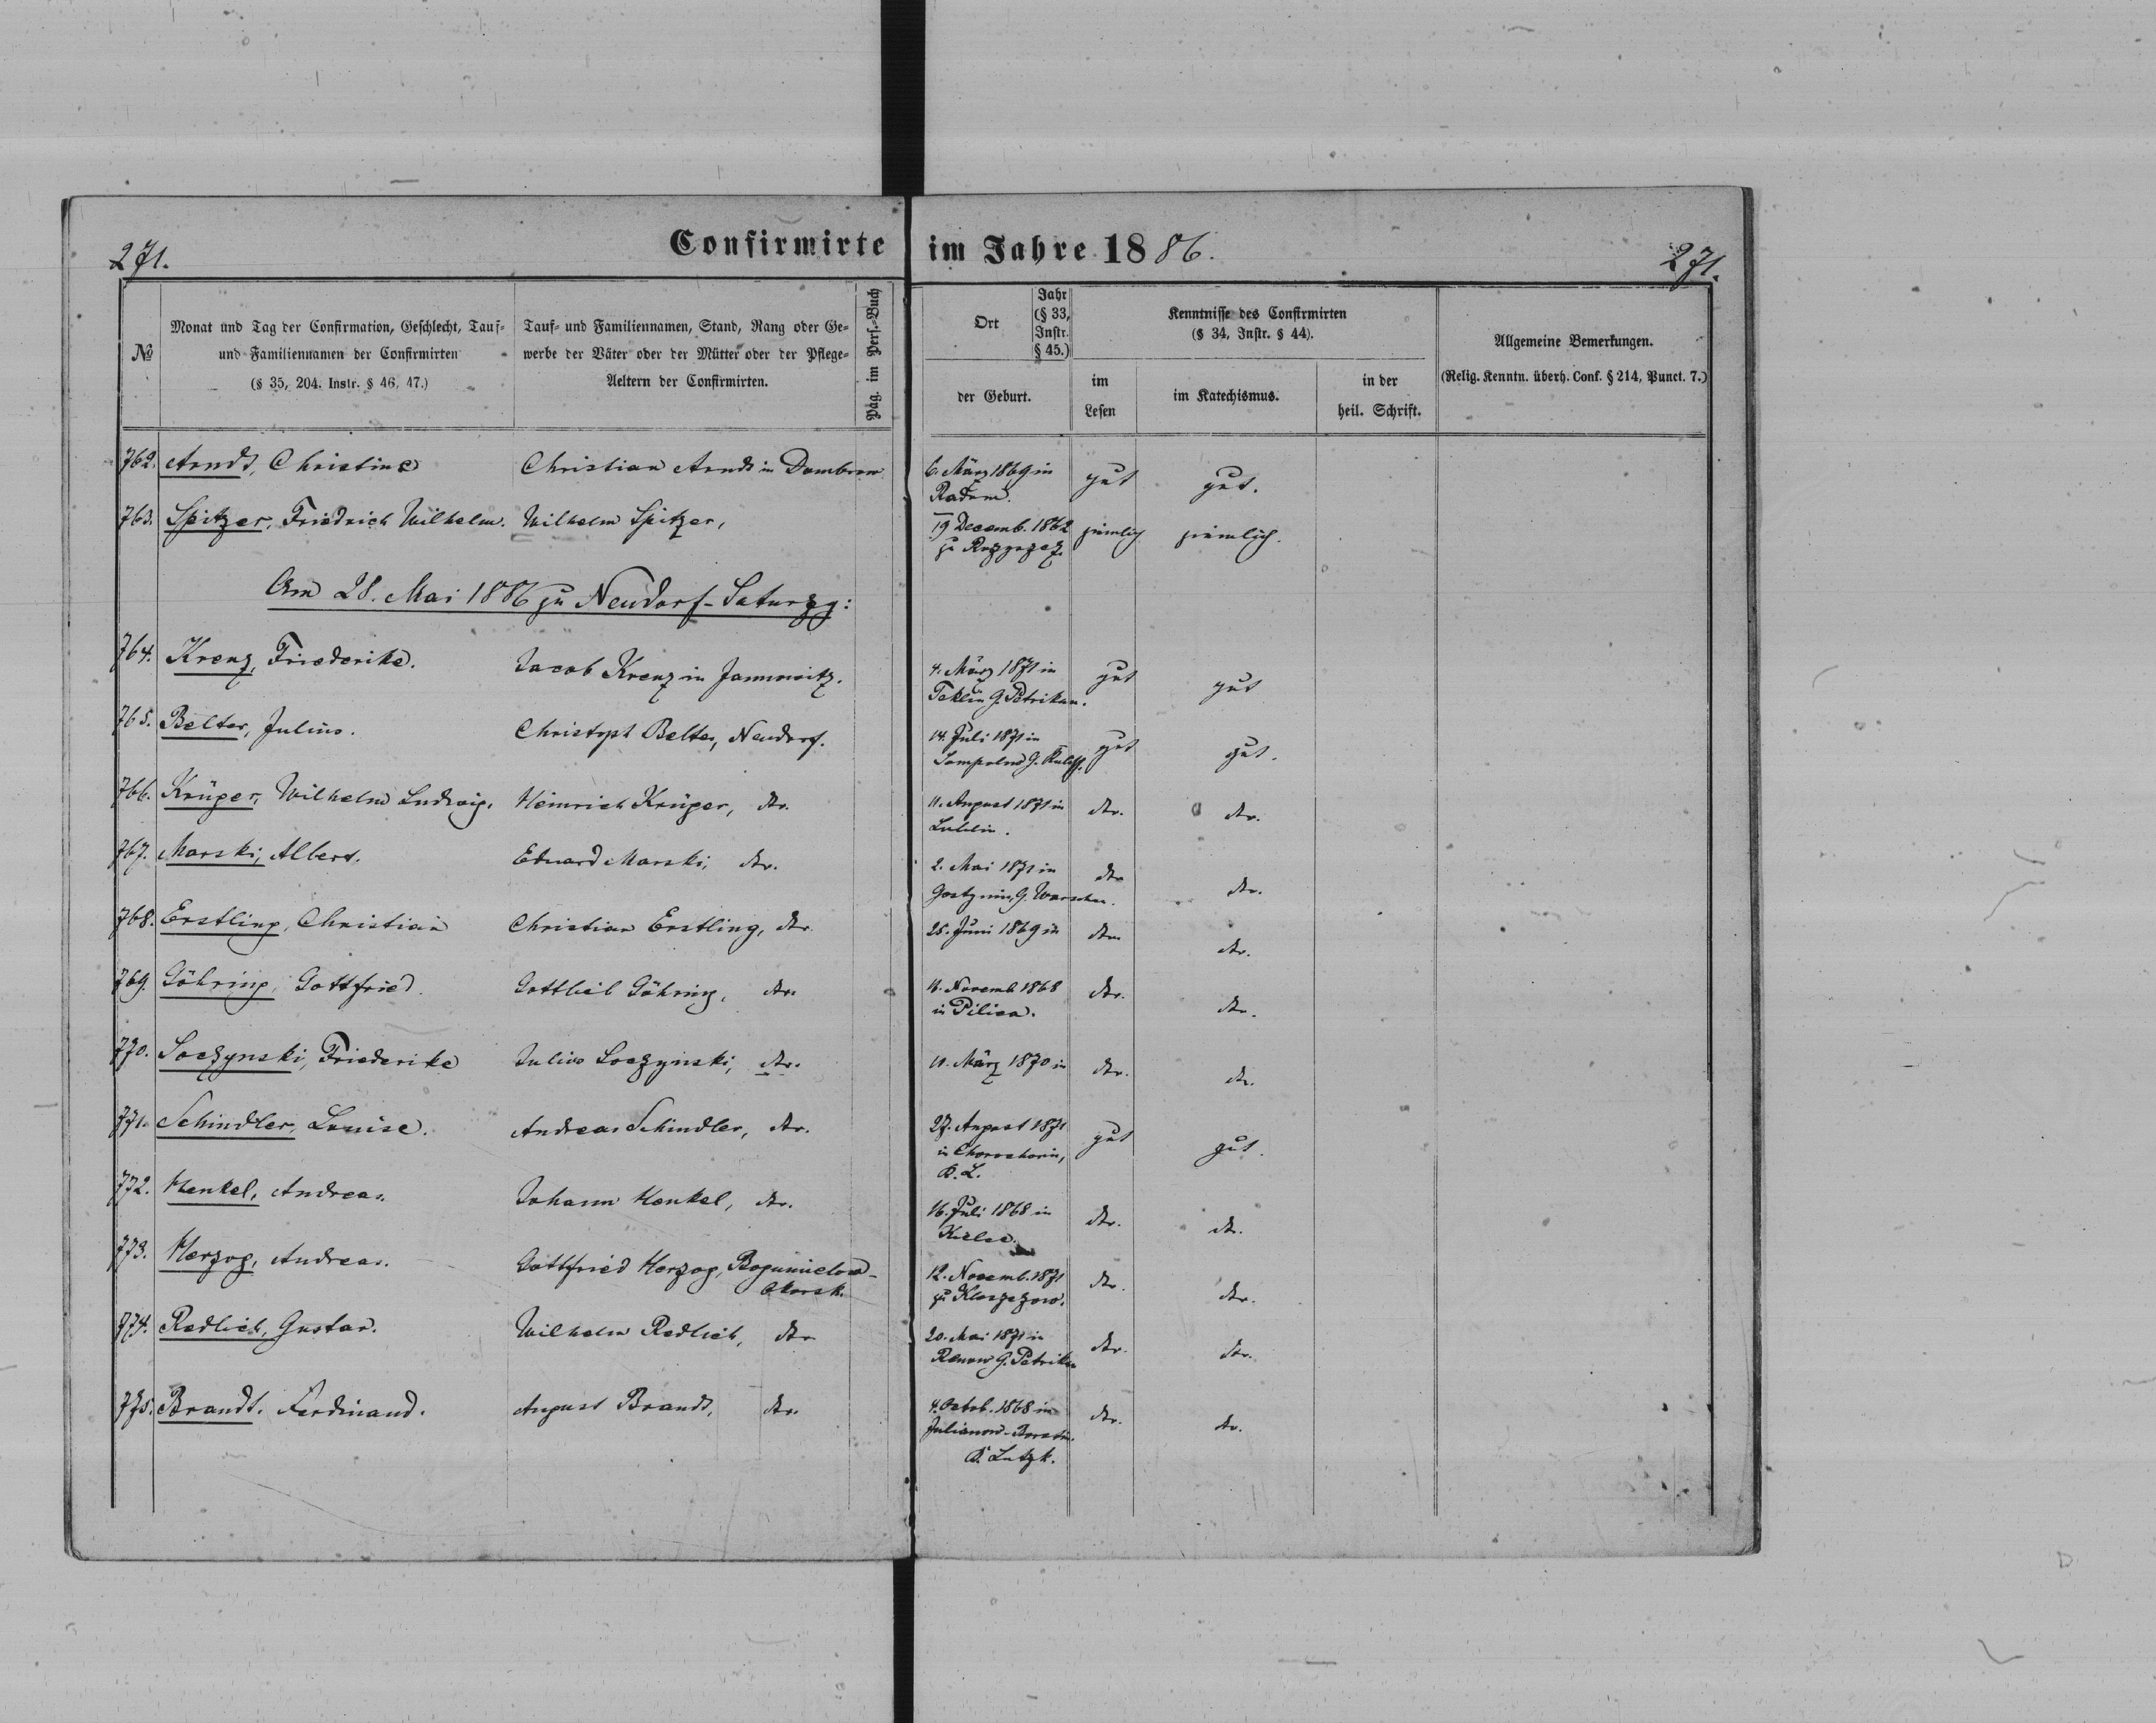 271.
Confirmirte im Jahre 1886.
271.
№
Monat und Tag der Confirmation, Geschlecht, Tauf-
und Familiennamen der Confirmirten
(§ 35, 204. Instr. § 46, 47.)
Tauf- und Familiennamen, Stand, Rang oder Ge-
werbe der Väter oder der Mütter oder der Pflege-
Aeltern der Confirmirten.
Pag. im Pers.-Buch
Ort
Jahr
(§ 33,
Instr.
§ 45.)
der Geburt.
Kenntnisse des Confirmirten
(§ 34, Instr. § 44).
im
Lesen
im Katechismus.
in der
heil. Schrift.
Allgemeine Bemerkungen.
(Relig. Kenntn. überh. Conf. § 214, Punct. 7.)
762. Arndt, Christine Christian Arndt in Dombrow 6. März 1869 in gut gut.
Radom.
763. Spitzer, Friedrich Wilhelm. Wilhelm Spitzer, 19 Decemb. 1862 ziemlich ziemlich.
zu
Am 28. Mai 1886 zu Neudorf-Saturzy:
764. Krenz, Friederike. Jacob Krenz in 4. März 1871 in gut gut
Teklin G. Petrikau.
765. Belter, Julius. Christoph Belter, Neudorf. 14. Juli 1871 in gut gut.
Sompolno G. Kalisch.
766. Krüger, Wilhelm Ludwig. Heinrich Krüger, dto. 11. August 1871 in dto. dto.
Lublin.
767. Marski, Albert. Eduard Marski, dto. 2. Mai 1871 in dto dto.
Gostynin, G. Warschau.
768. Erstling, Christian Christian Erstling, dto. 25. Juni 1869 in dto dto.
769. Göhring, Gottfried. Gottlieb Göhring, dto. 16. Novemb. 1868 dto. dto.
in Pilica.
770. Soczynski, Friederike Julius Soczynski, dto. 11. März 1870 in dto. dto.
771. Schindler, Louise. Andreas Schindler, dto. 27. August 1871 gut gut.
in
K. L.
772. Henkel, Andreas. Johann Henkel, dto. 16. Juli 1868 in dto. dto.
Kielce.
773. Herzog, Andreas. Gottfried Herzog, 12. Novemb. 1871 dto. dto.
zu
774. Redlich, Gustav. Wilhelm Redlich, dto 20. Mai 1871 in dto. dto.
Renow G. Petrikau
775. Brandt. Ferdinand. August Brandt, dto. 4. Octob. 1868 in dto. dto.
Julianow-Boratin.
K. Lutzk.